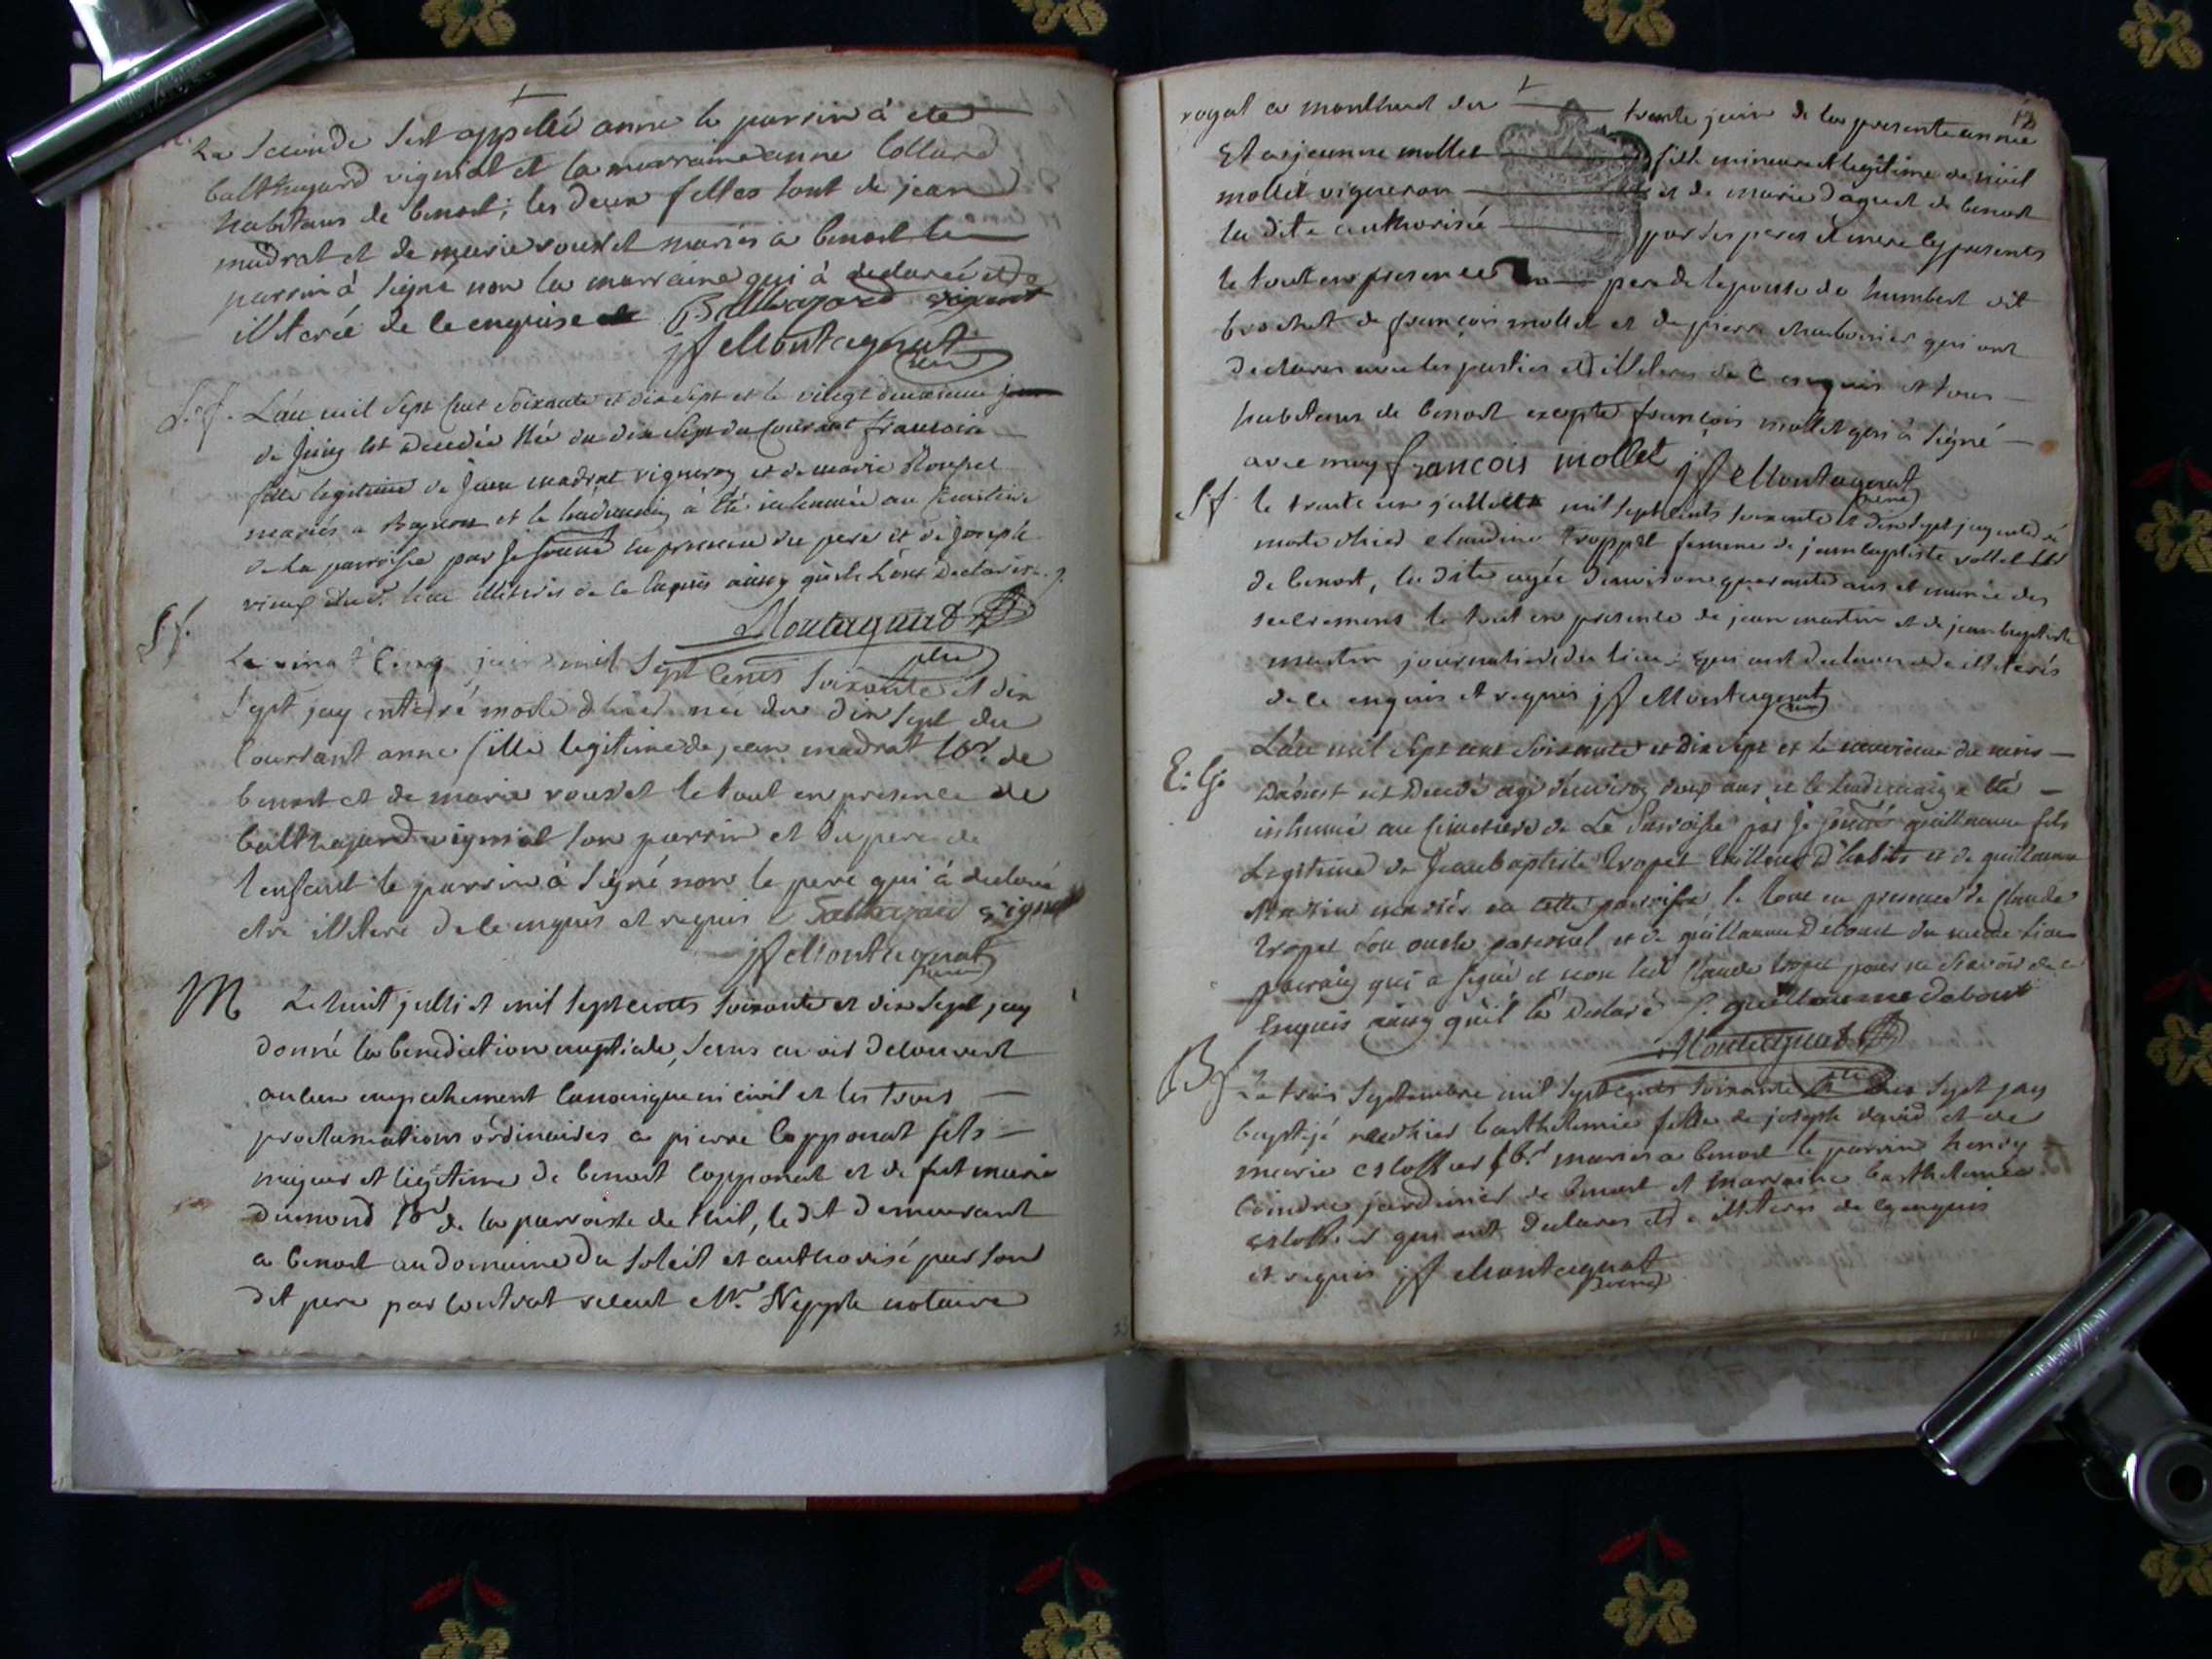 La seconde s'est appellé anne le parrin à ete
balthazard vigniat et la marraine anne collard
habitans de benost; les deux filles sont de jean
madrat et de marie rousset mariés a benost le
parrin à signé non la marraine qui à declaréé etre
illiterée de ce enquise Balthazard
jf Montagnat
S. f. L'an mil sept cent soixante et dix sept et le vingt deuxieme jour
de juin est decedée née du dix sept du courant francoise
fille legitime de jean madrat vigneron et de marie Rousset
mariés a et le lendemain à été inhumée au cimetiere
de la parroisse par je en presence du pere et de joseph
du d. lieu illiterés de ce enquis ainsy qu'ils l'ont declaré
Montagnat
S. f.
Le vingt cinq juin mil sept cents soixante et dix
sept jay enterré morte d'hier née du dix sept du
courrant anne fille legitime de jean madrat de
benost et de marie rousset le tout en presence de
balthazard vignial son parrin et du pere de
l'enfant le parrin à signé non le pere qui à declaré
etre illitere de ce enquis et requis Baltazard
jf Montagnat
M Le huit julliet mil sept cents soixante et dix sept jay
donné la benediction nuptiale, sans avoir decouvert
aucun empechement canonique ni civil et les trois
proclamations ordinaires a pierre copponat fils
majeur et legitime de benoit copponat et de fut marie
dumond de la parroisse de, le dit demeurant
a benost au domaine du soleil et authorisé par son
dit pere par contrat receut Mr. Nepple notaire
royal a monthuel du trente juin de la presente année
Et a jeanne mollet fille mineure et legitime de
mollet vigneron et de marie daguet de benost
la dite authorisée par ses peres et mere cy presents
le tout en presence pere de lepouse de humbert dit
brochet de françois mollet et de pierre charbonier qui ont
declarés avec les parties etre illiteres de ce enquis et tous
habitans de benost excepté françois mollet qui à signé
avec moy françois mollet jf Montagnat
S f. le trente un julliet mil sept cents soixante et dix sept jay enterré
morte d'hier claudine troppet femme de jean baptiste
de benost, la dite agée denviron quarante ans et munie des
sacrements le tout en presence de jean martin et de jean baptiste
martin journaliers du lieu qui ont declarés etre illiterés
de ce enquis et requis jf Montagnat
E. G. L'an mil sept cent soixante et dix sept et le neuvieme du mois
d'aoust est decedé agé d'environ deux ans et le lendemain a été
inhumé au cimetiere de la parroisse par je guillaume fils
legitime de jean baptiste tropet tailleur d'habits et de guillaume
martin mariés en cette parroisse, le tout en presence de claude
tropet son oncle paternel et de guillaume debout du meme lieu
parrain qui a signé et non led. claude tropet pour ne scavoir de ce
enquis ainsy qu'il la declaré guillaume debout
Montagnat
B f Le trois septembre mil sept cents soixante et dix sept jay
baptisé née d'hier barthelemie fille de joseph david et de
marie mariés a benost le parrin henry
coindre jardinier de benost et marraine barthelemie
qui ont declarés etre illiteres de ce enquis
et requis jf Montagnat